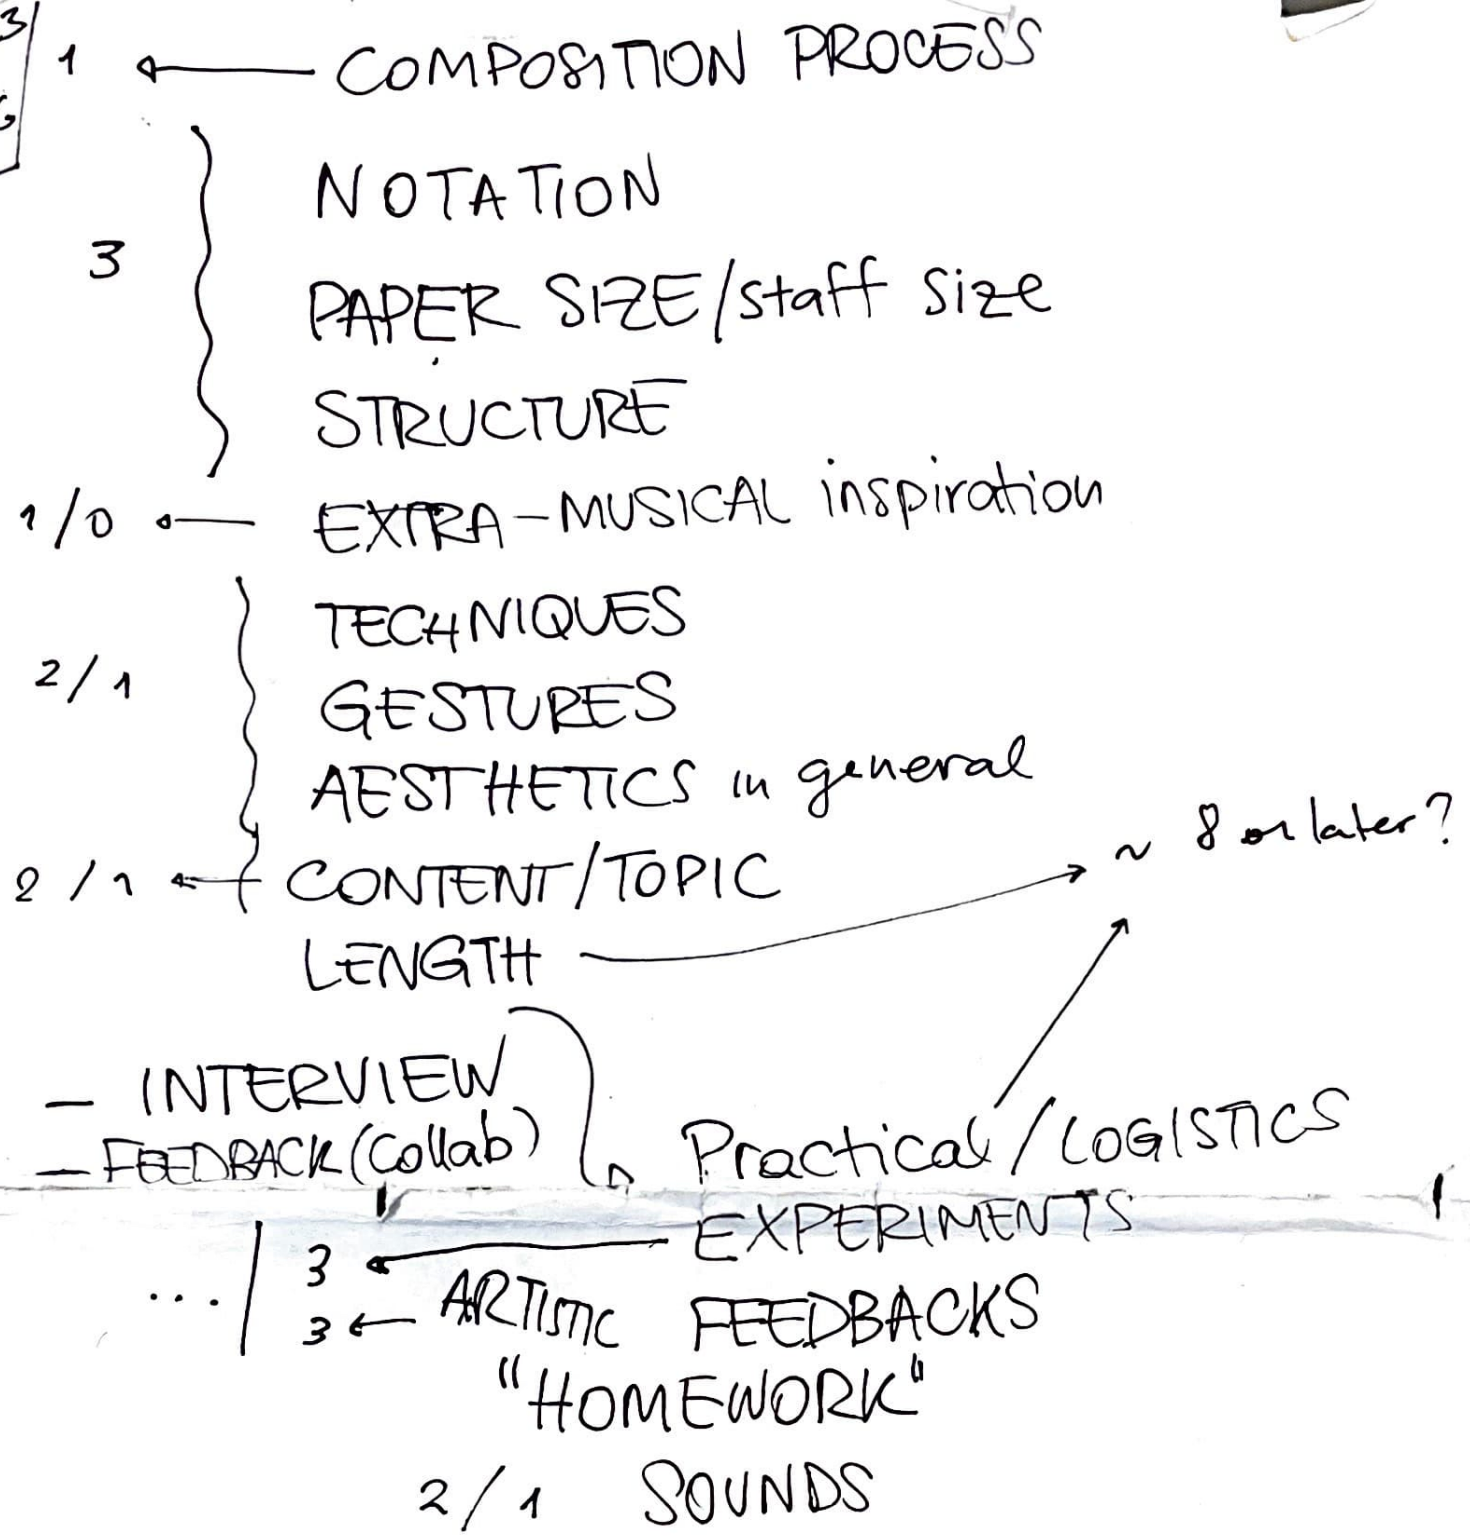 3
1 ← COMPOSITION PROCESS
NOTATION
3
PAPER SIZE/staff size
STRUCTURE
1/0 ← EXTRA-MUSICAL inspiration
TECHNIQUES
2/1
GESTURES
AESTHETICS in general
~ 8 or later?
2/1 ← CONTENT/TOPIC
LENGTH
– INTERVIEW
– FEEDBACK (collab)
Practical/LOGISTICS
3 ← EXPERIMENTS
... 3 ← ARTISTIC FEEDBACKS
"HOMEWORK"
2/1 SOUNDS